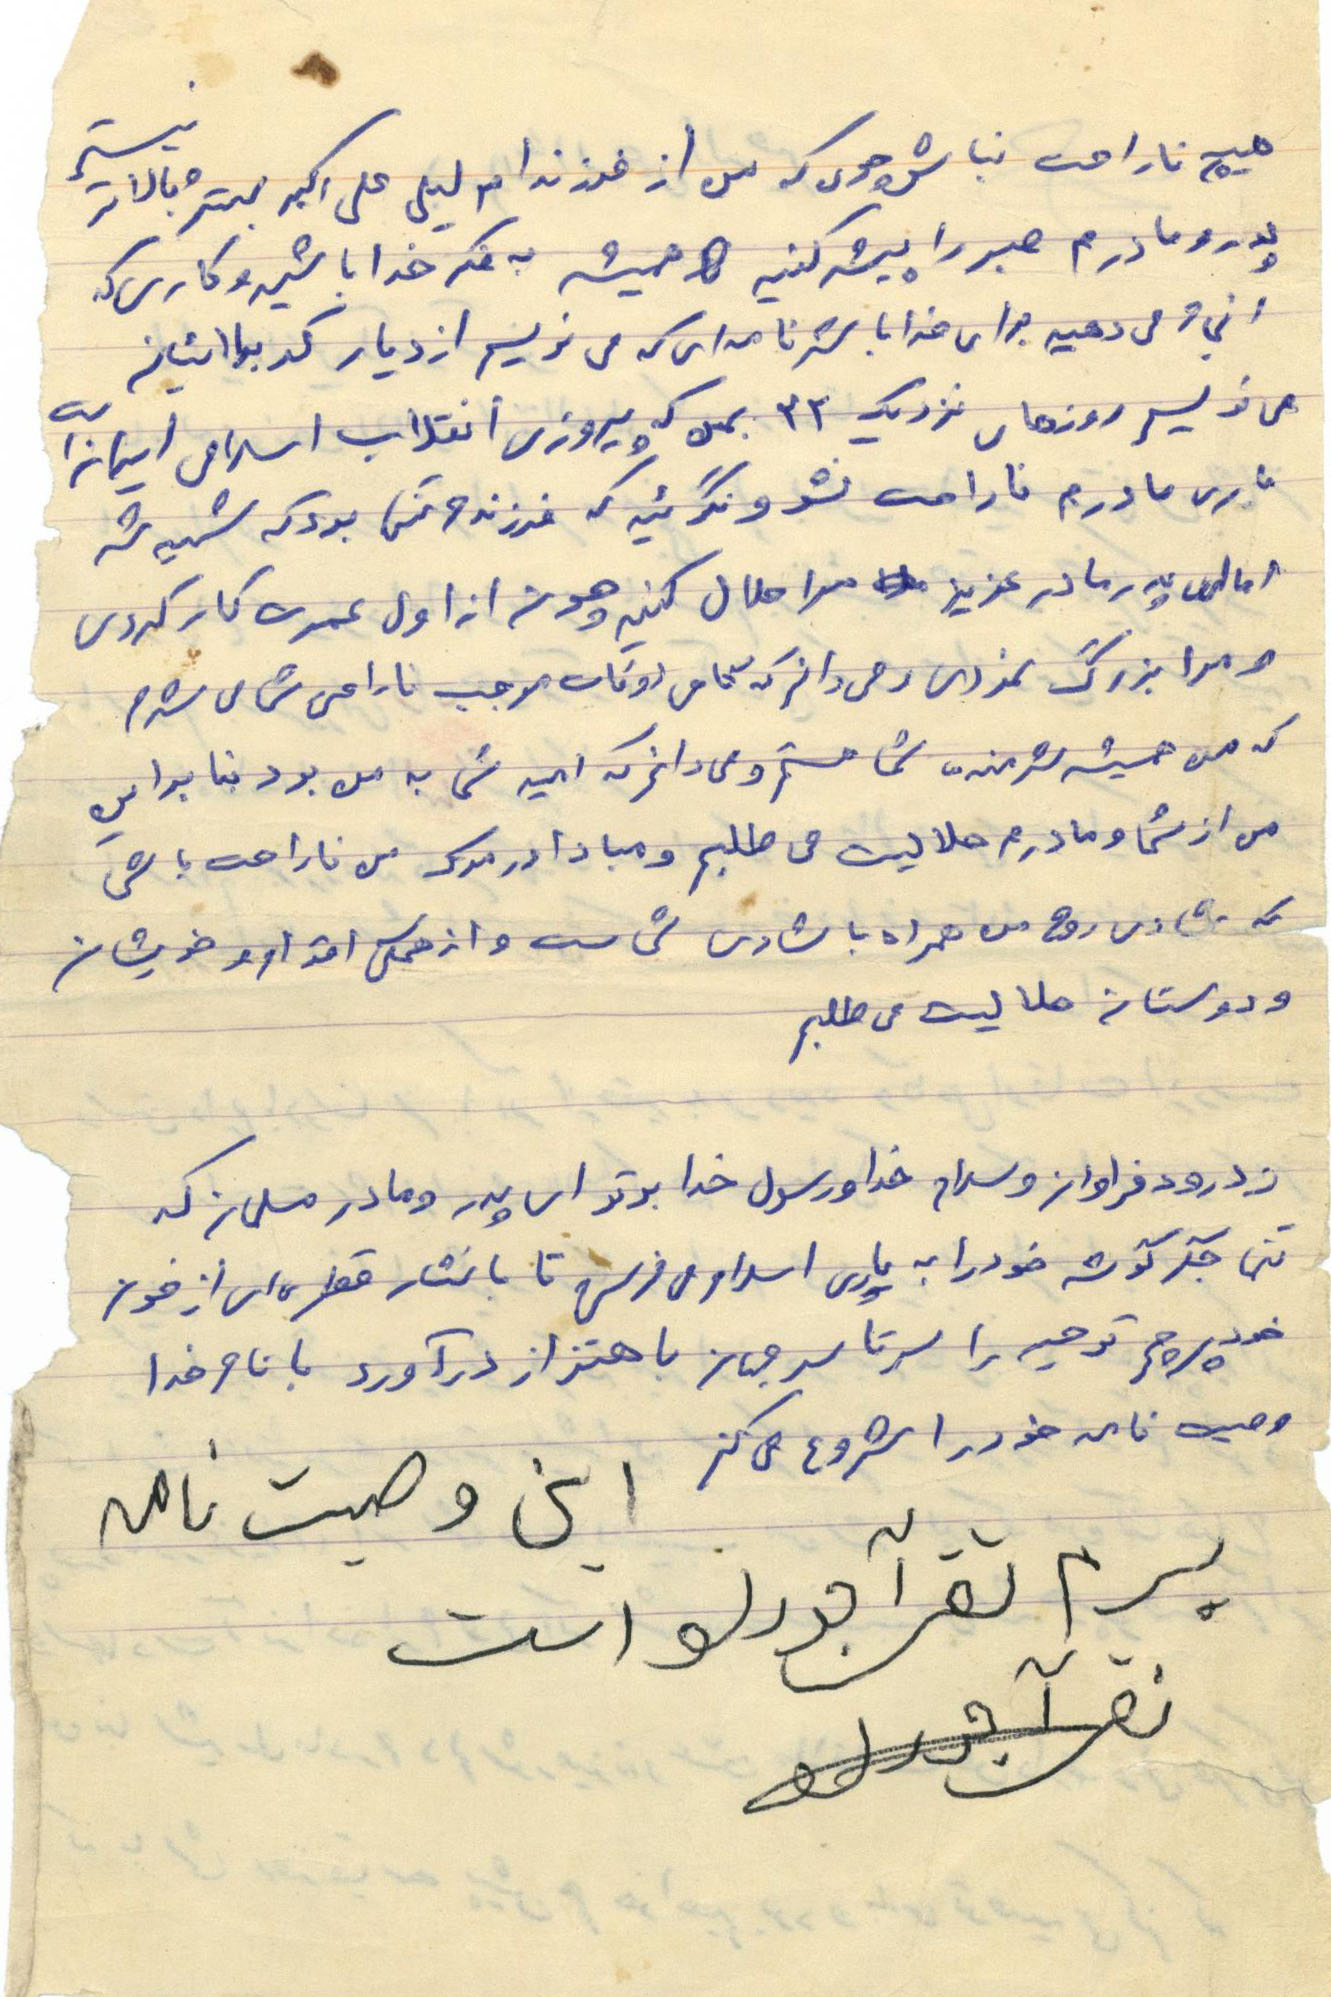 هیچ ناراحت نباش چون که من از فرزند ام لیلی علی اکبر بهتر و بالاتر نیستم
پدر و مادرم صبر را پیشه کنید و همیشه به فکر خدا باشید و کاری که
انجام می دهید برای خدا باشد نامه ای که می نویسم از دیار کربلا ایشان
می نویسم روزهای نزدیک ۲۲ بهمن که پیروزی انقلاب اسلامی ایمان است
باری مادرم ناراحت نشو و نگوئید که فرزندم تنها بود که شهید شد
اما ای پدر مادر عزیز مرا حلال کنید چون از اول عمرت کار کردی
و مرا بزرگ نمودی و می دانم که تمامی اوقات موجب ناراحتی شما می شدم
که من همیشه شرمنده شما هستم و می دانم که امید شما به من بود بنا براین
من از شما و مادرم حلالیت می طلبم و مبادا در مرگ من ناراحت باشی
که شادی روح من همراه با شادی شماست و از همگی اقوام و خویشان
و دوستان حلالیت می طلبم
درود فراوان و سلام خدا و رسول خدا بر تو ای پدر و مادر مسلمان که
تنها جگر گوشه خود را به یاری اسلام می فرستی تا با نثار قطره ای از خون
خود پرچم توحید را سرتاسر جهان باهتزاز درآورد با نام خدا
وصیت نامه خود را شروع می کنم این وصیت نامه
پسرم تقی آجورلو است
تقی آجورلو